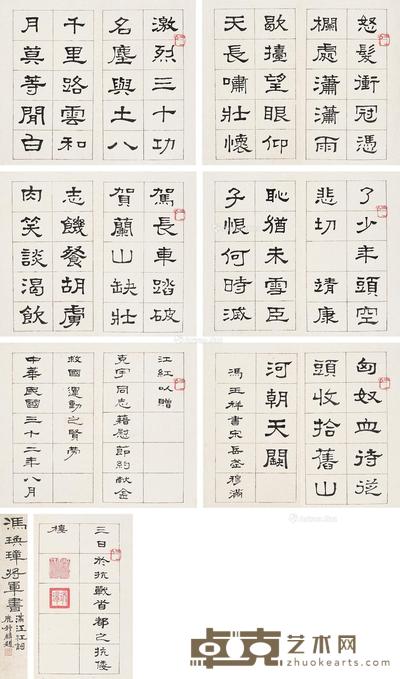 怒髮衝冠憑
欄處瀟瀟雨
歇擡望眼仰
天長嘯壯懷
激烈三十功
名塵與土八
千里路雲和
月莫等閒白
了少年頭空
悲切 靖康
恥猶未雪臣
子恨何時滅
駕長車踏破
賀蘭山缺壯
志饑餐胡虜
肉笑談渴飲
匈奴血待從
頭收拾舊山
河朝天闕
馮玉祥書宋岳武穆滿
江紅以贈
克宇同志藉慰節約獻金
救國運動之賢勞
中華民國三十二年八月
三日於抗戰首都之抗倭
樓
馮煥璋將軍書
滿江紅詞
鹿鍾麟題
卓克艺术网
zhuokearts.com